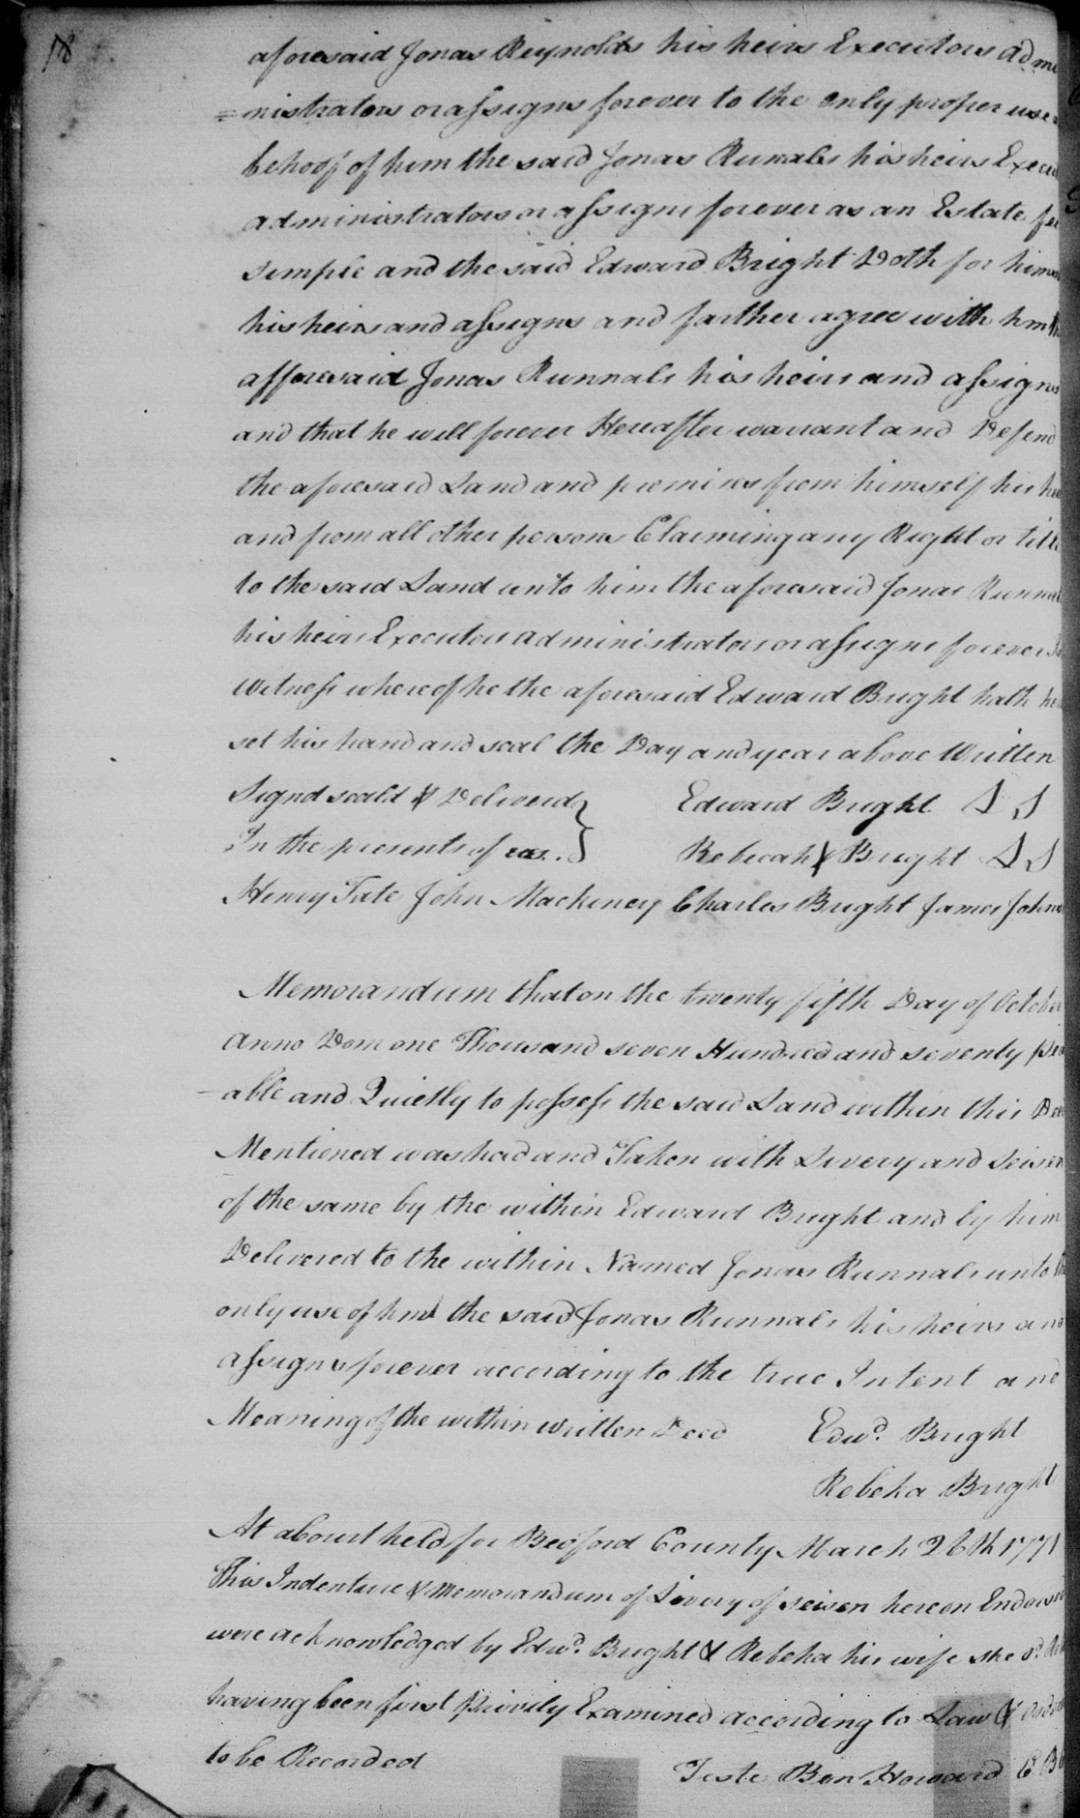 78
aforesaid Jonas Reynolds his heirs Executors admi
=nistrators or assigns forever to the only proper use
behoof of him the said Jonas Runnals his heirs Execu
administrators or assigns forever as an Estate fee
simple and the said Edward Bright Doth for him
his heirs and assigns and farther agree with him
afforesaid Jonas Runnals his heirs and assigns
and that he will forever Hereafter warrant and Defend
the aforesaid Land and premises from himself his
and from all other persons Claiming any Right or title
to the said Land unto him the aforesaid Jonas Runnal
his heirs Executors administrators or assigns forever
witness whereof he the aforesaid Edward Bright hath
set his hand and seal the Day and year above Written
Signd seald & Deliverd Edward Bright L S
In the presents of Rebecah Bright L S
Henry Tate John Mackeney Charles Bright James Johns
Memorandum that on the twenty fifth Day of October
anno Dom one Thousand seven Hundred and seventy
able and Quietly to possess the said Land within this
Mentioned was had and Taken with Livery and Seisen
of the same by the within Edward Bright and by him
Delivered to the within Named Jonas Runnals unto
only use of him the said Jonas Runnals his heirs and
assigns forever according to the true Intent and
Meaning of the within written Deed Edwd. Bright
Rebeka Bright
At a Court held for Bedford County March 26th 1771
This Indenture & Memorandum of Livery of seisen hereon Endors
were acknowledged by Edwd. Bright & Rebeka his wife she sd.
having been first Privily Examined according to Law &
to be Recorded Teste Ben Howard